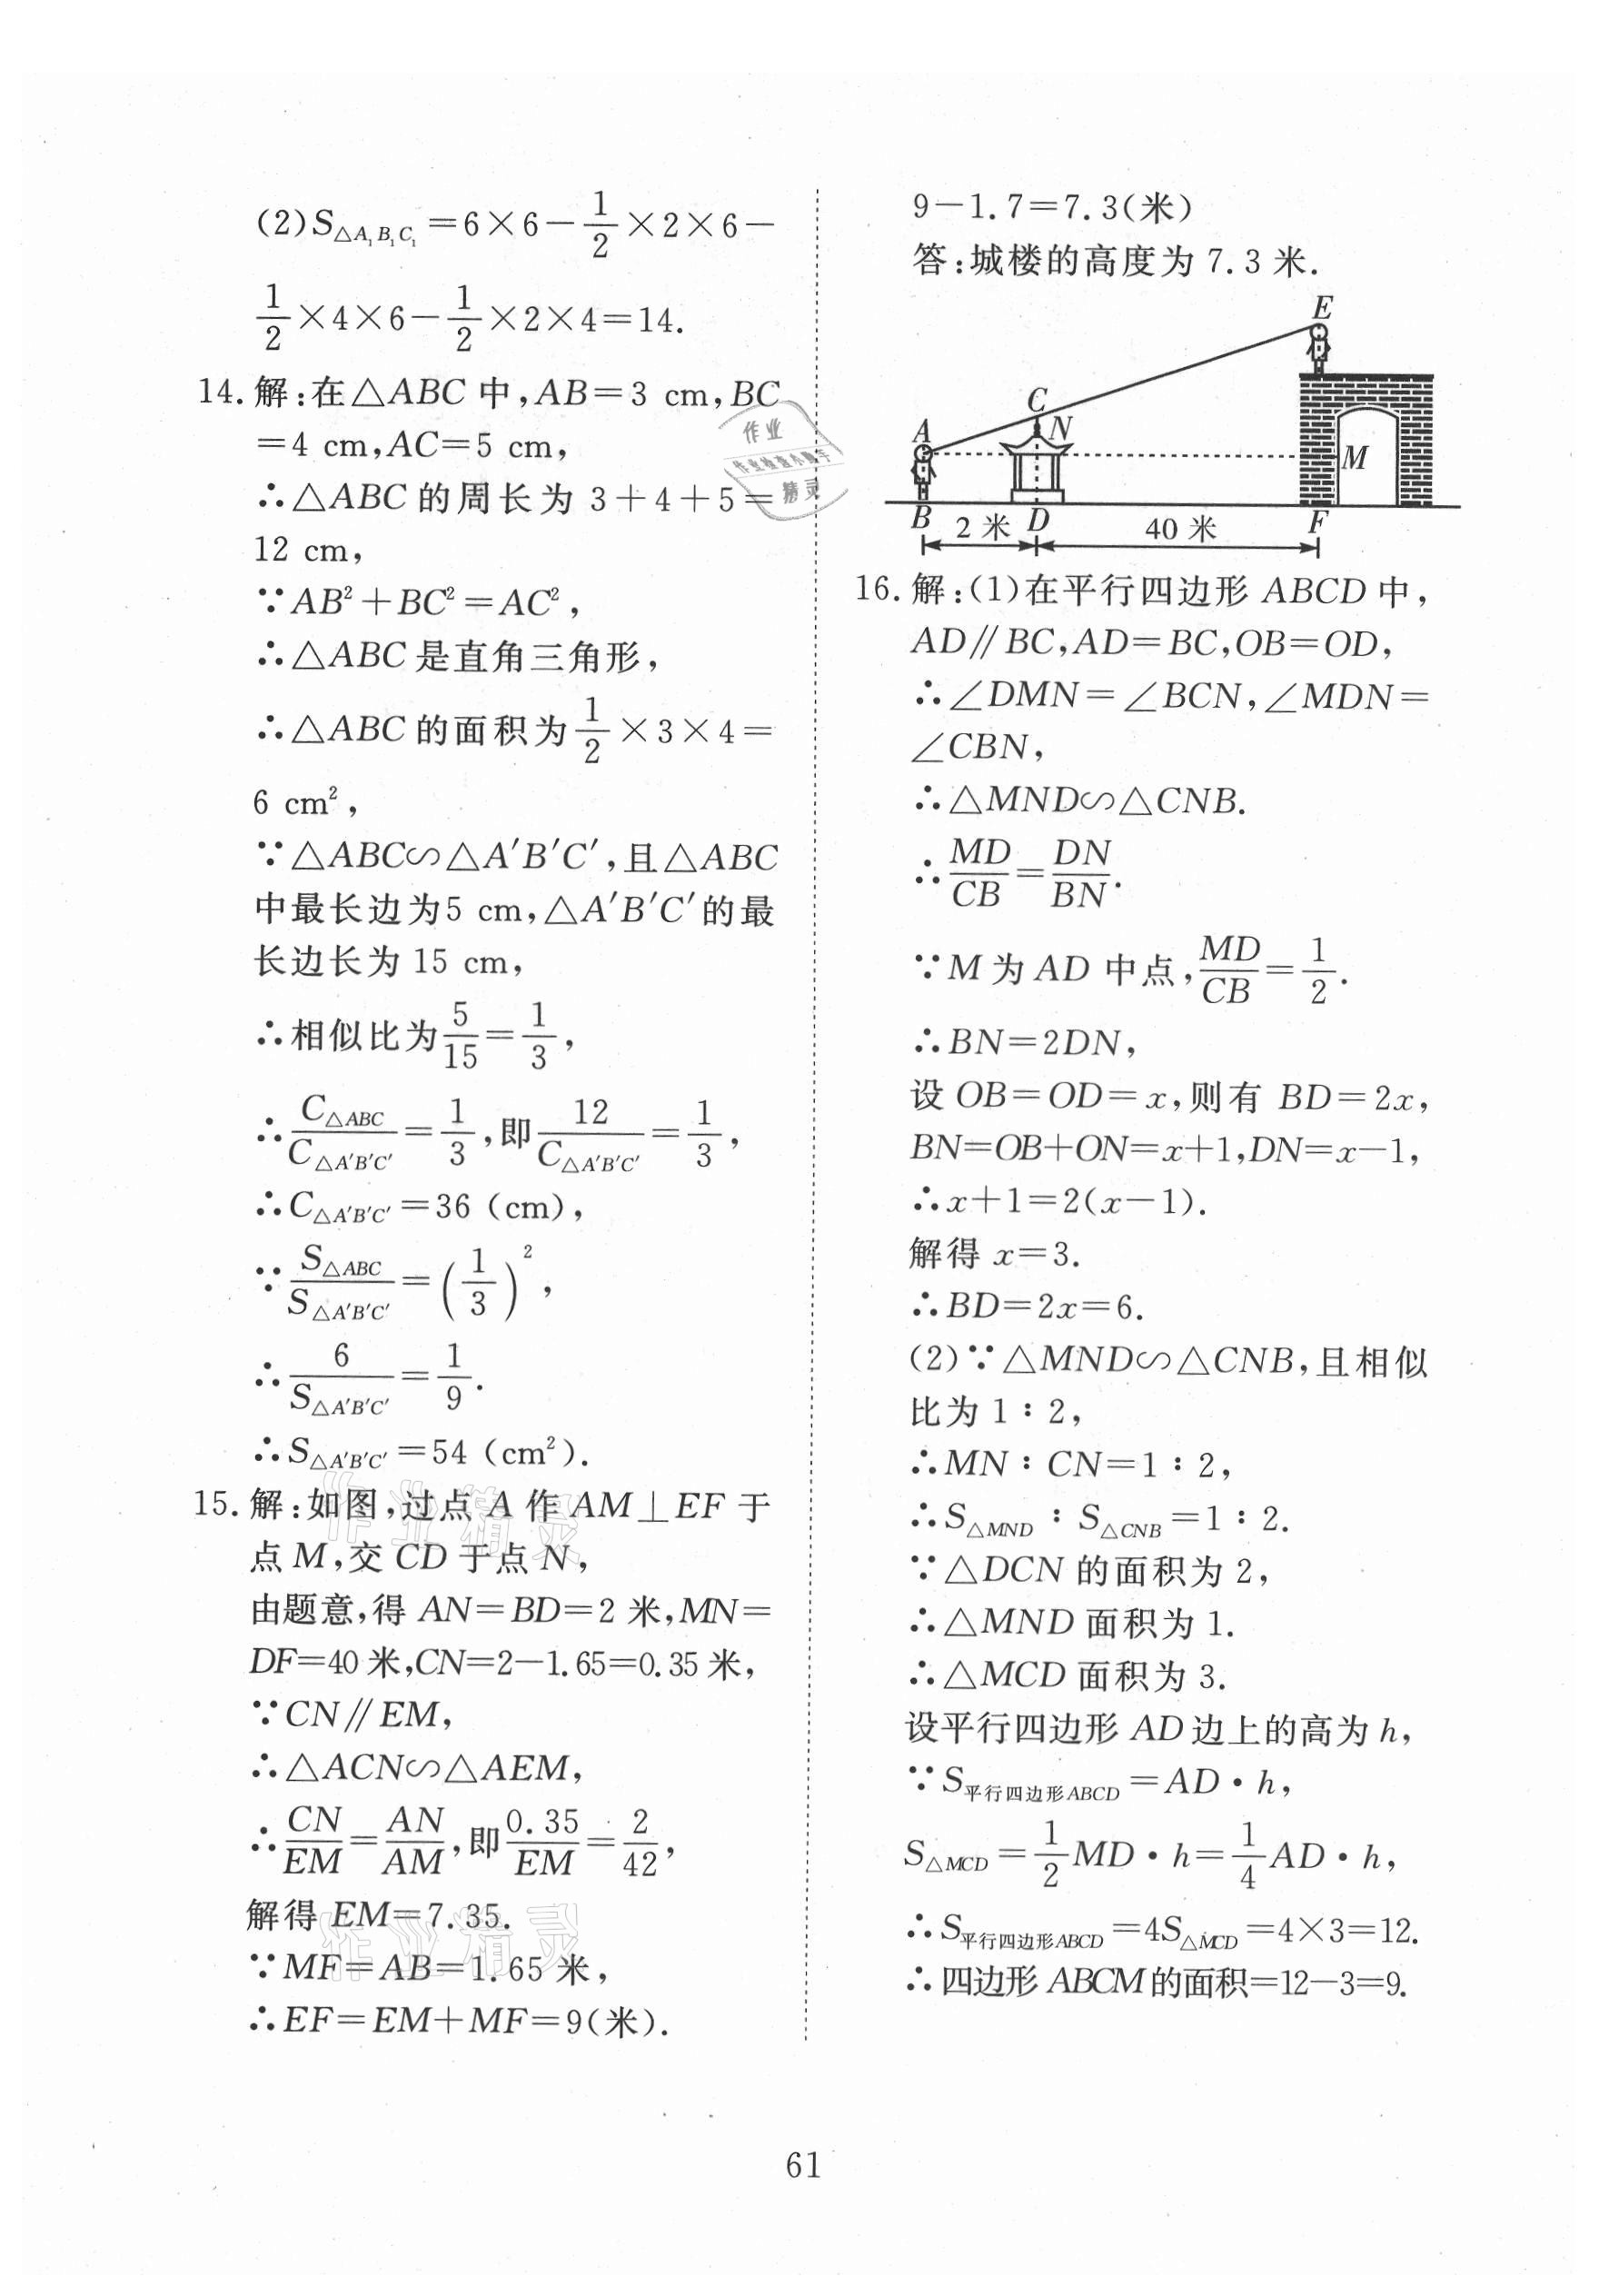 (2)S△A₁B₁C₁=6×6−1/2×2×6−
1/2×4×6−1/2×2×4=14.
14. 解:在△ABC中,AB=3 cm,BC
=4 cm,AC=5 cm,
∴△ABC的周长为 3+4+5=
12 cm,
∵AB²+BC²=AC²,
∴△ABC是直角三角形,
∴△ABC的面积为1/2×3×4=
6 cm²,
∵△ABC∽△A′B′C′,且△ABC
中最长边为5 cm,△A′B′C′的最
长边长为 15 cm,
∴相似比为5/15=1/3,
∴C△ABC/C△A′B′C′=1/3,即12/C△A′B′C′=1/3,
∴C△A′B′C′=36 (cm),
∵S△ABC/S△A′B′C′=(1/3)²,
∴6/S△A′B′C′=1/9.
∴S△A′B′C′=54 (cm²).
15. 解:如图,过点 A 作 AM⊥EF 于
点M,交 CD 于点 N,
由题意,得 AN=BD=2 米,MN=
DF=40米,CN=2−1.65=0.35米,
∵CN∥EM,
∴△ACN∽△AEM,
∴CN/EM=AN/AM,即0.35/EM=2/42,
解得 EM=7.35.
∵MF=AB=1.65米,
∴EF=EM+MF=9(米).
9−1.7=7.3(米)
答:城楼的高度为 7.3 米.
E
C
A
N
M
B
2 米
D
40 米
F
16. 解:(1)在平行四边形 ABCD 中,
AD∥BC,AD=BC,OB=OD,
∴∠DMN=∠BCN,∠MDN=
∠CBN,
∴△MND∽△CNB.
∴MD/CB=DN/BN.
∵M为AD 中点,MD/CB=1/2.
∴BN=2DN,
设 OB=OD=x,则有 BD=2x,
BN=OB+ON=x+1,DN=x−1,
∴x+1=2(x−1).
解得 x=3.
∴BD=2x=6.
(2)∵△MND∽△CNB,且相似
比为 1∶2,
∴MN∶CN=1∶2,
∴S△MND∶S△CNB=1∶2.
∵△DCN 的面积为 2,
∴△MND 面积为 1.
∴△MCD 面积为 3.
设平行四边形 AD边上的高为 h,
∵S平行四边形ABCD=AD·h,
S△MCD=1/2MD·h=1/4AD·h,
∴S平行四边形ABCD=4S△MCD=4×3=12.
∴四边形 ABCM的面积=12−3=9.
作业
作业检查小助手
精灵
作业精灵
作业精灵
61